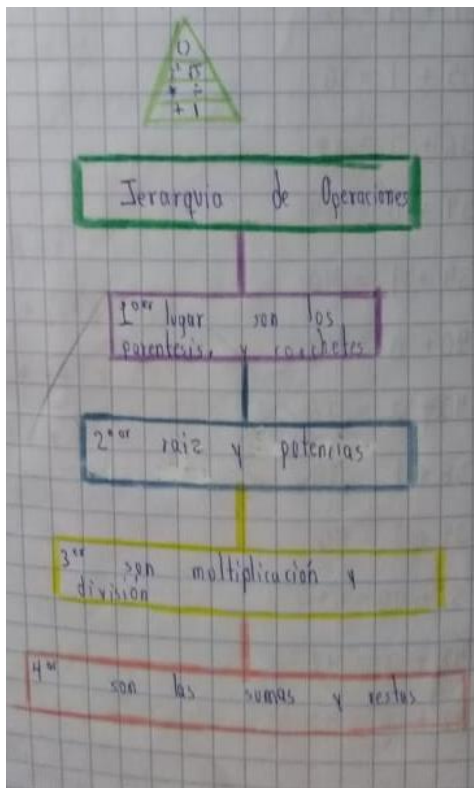 ()
* ÷
Jerarquia de Operaciones
1°er lugar son los
parentesis, y corchetes
2°er raiz y potencias
3er son moltiplicación y
división
4er son las sumas y restas